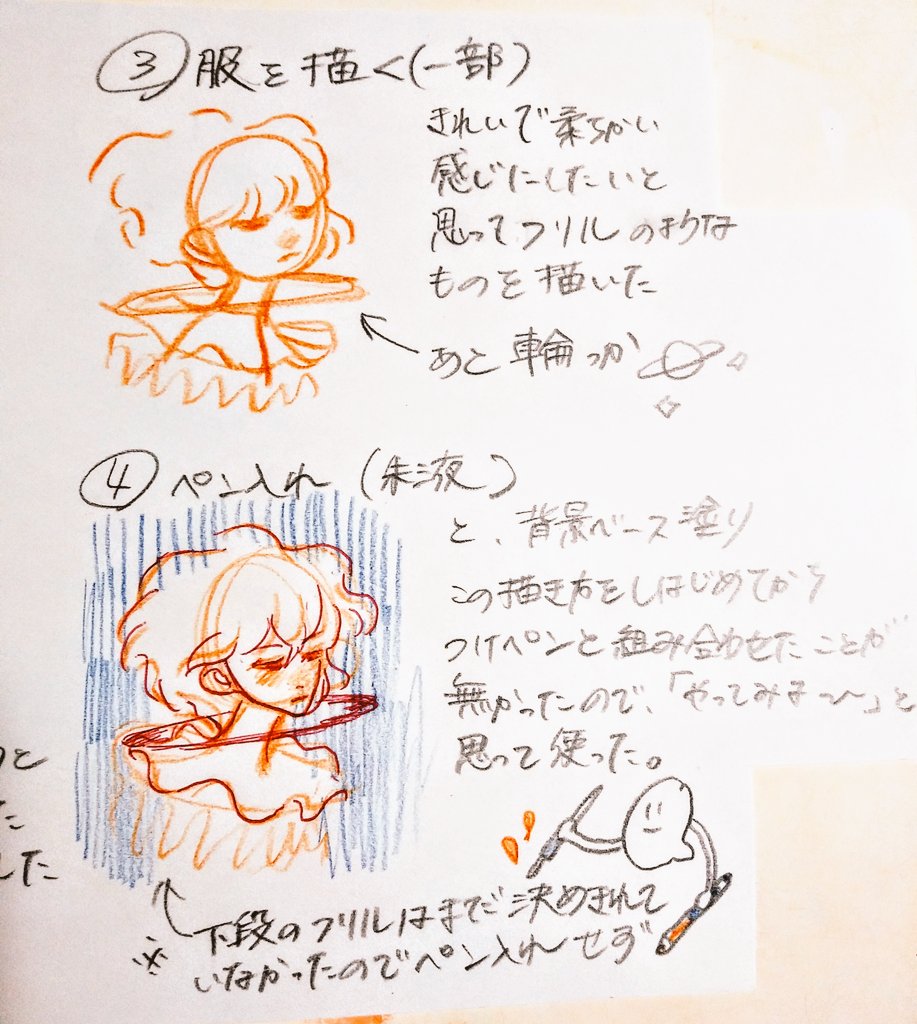 ③服を描く(一部)
きれいで柔らかい
感じにしたいと
思ってフリルのような
ものを描いた
あと輪っか
④ペン入れ(朱液)
と、背景ベース塗り
この描き方をしはじめてから
つけペンと組み合わせたことが
無かったので、「やってみよっ〜」と
思って使った。
のと
た
した
※下段のフリルはまだ決めきれて
いなかったのでペン入れせず